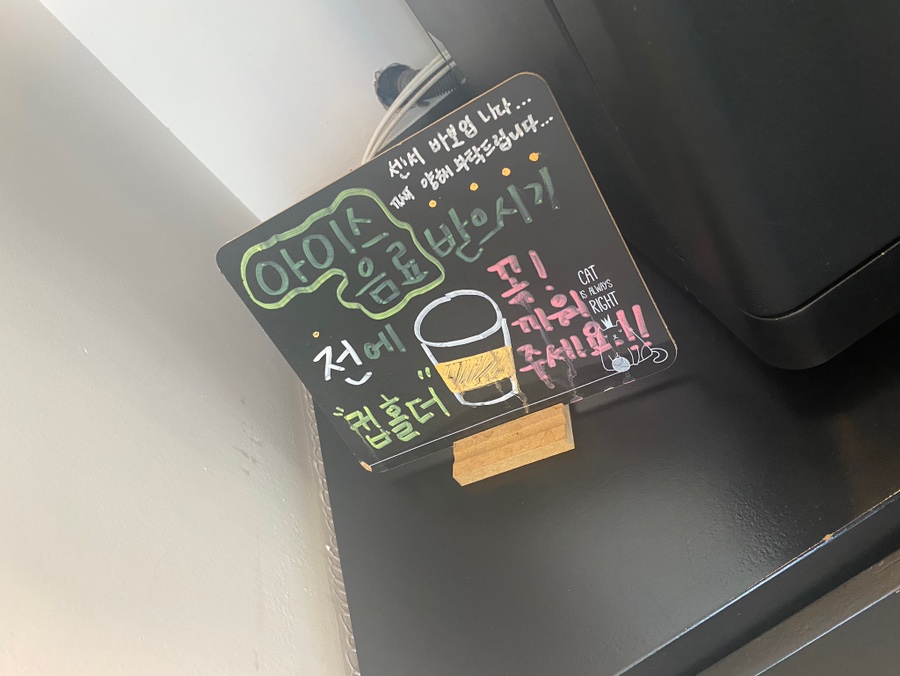 센서 바보입니다...
양해 부탁드립니다...
아이스
음료 받으시기
전에
"컵홀더"
꼭!
끼워
주세요!!!
CAT
IS ALWAYS
RIGHT